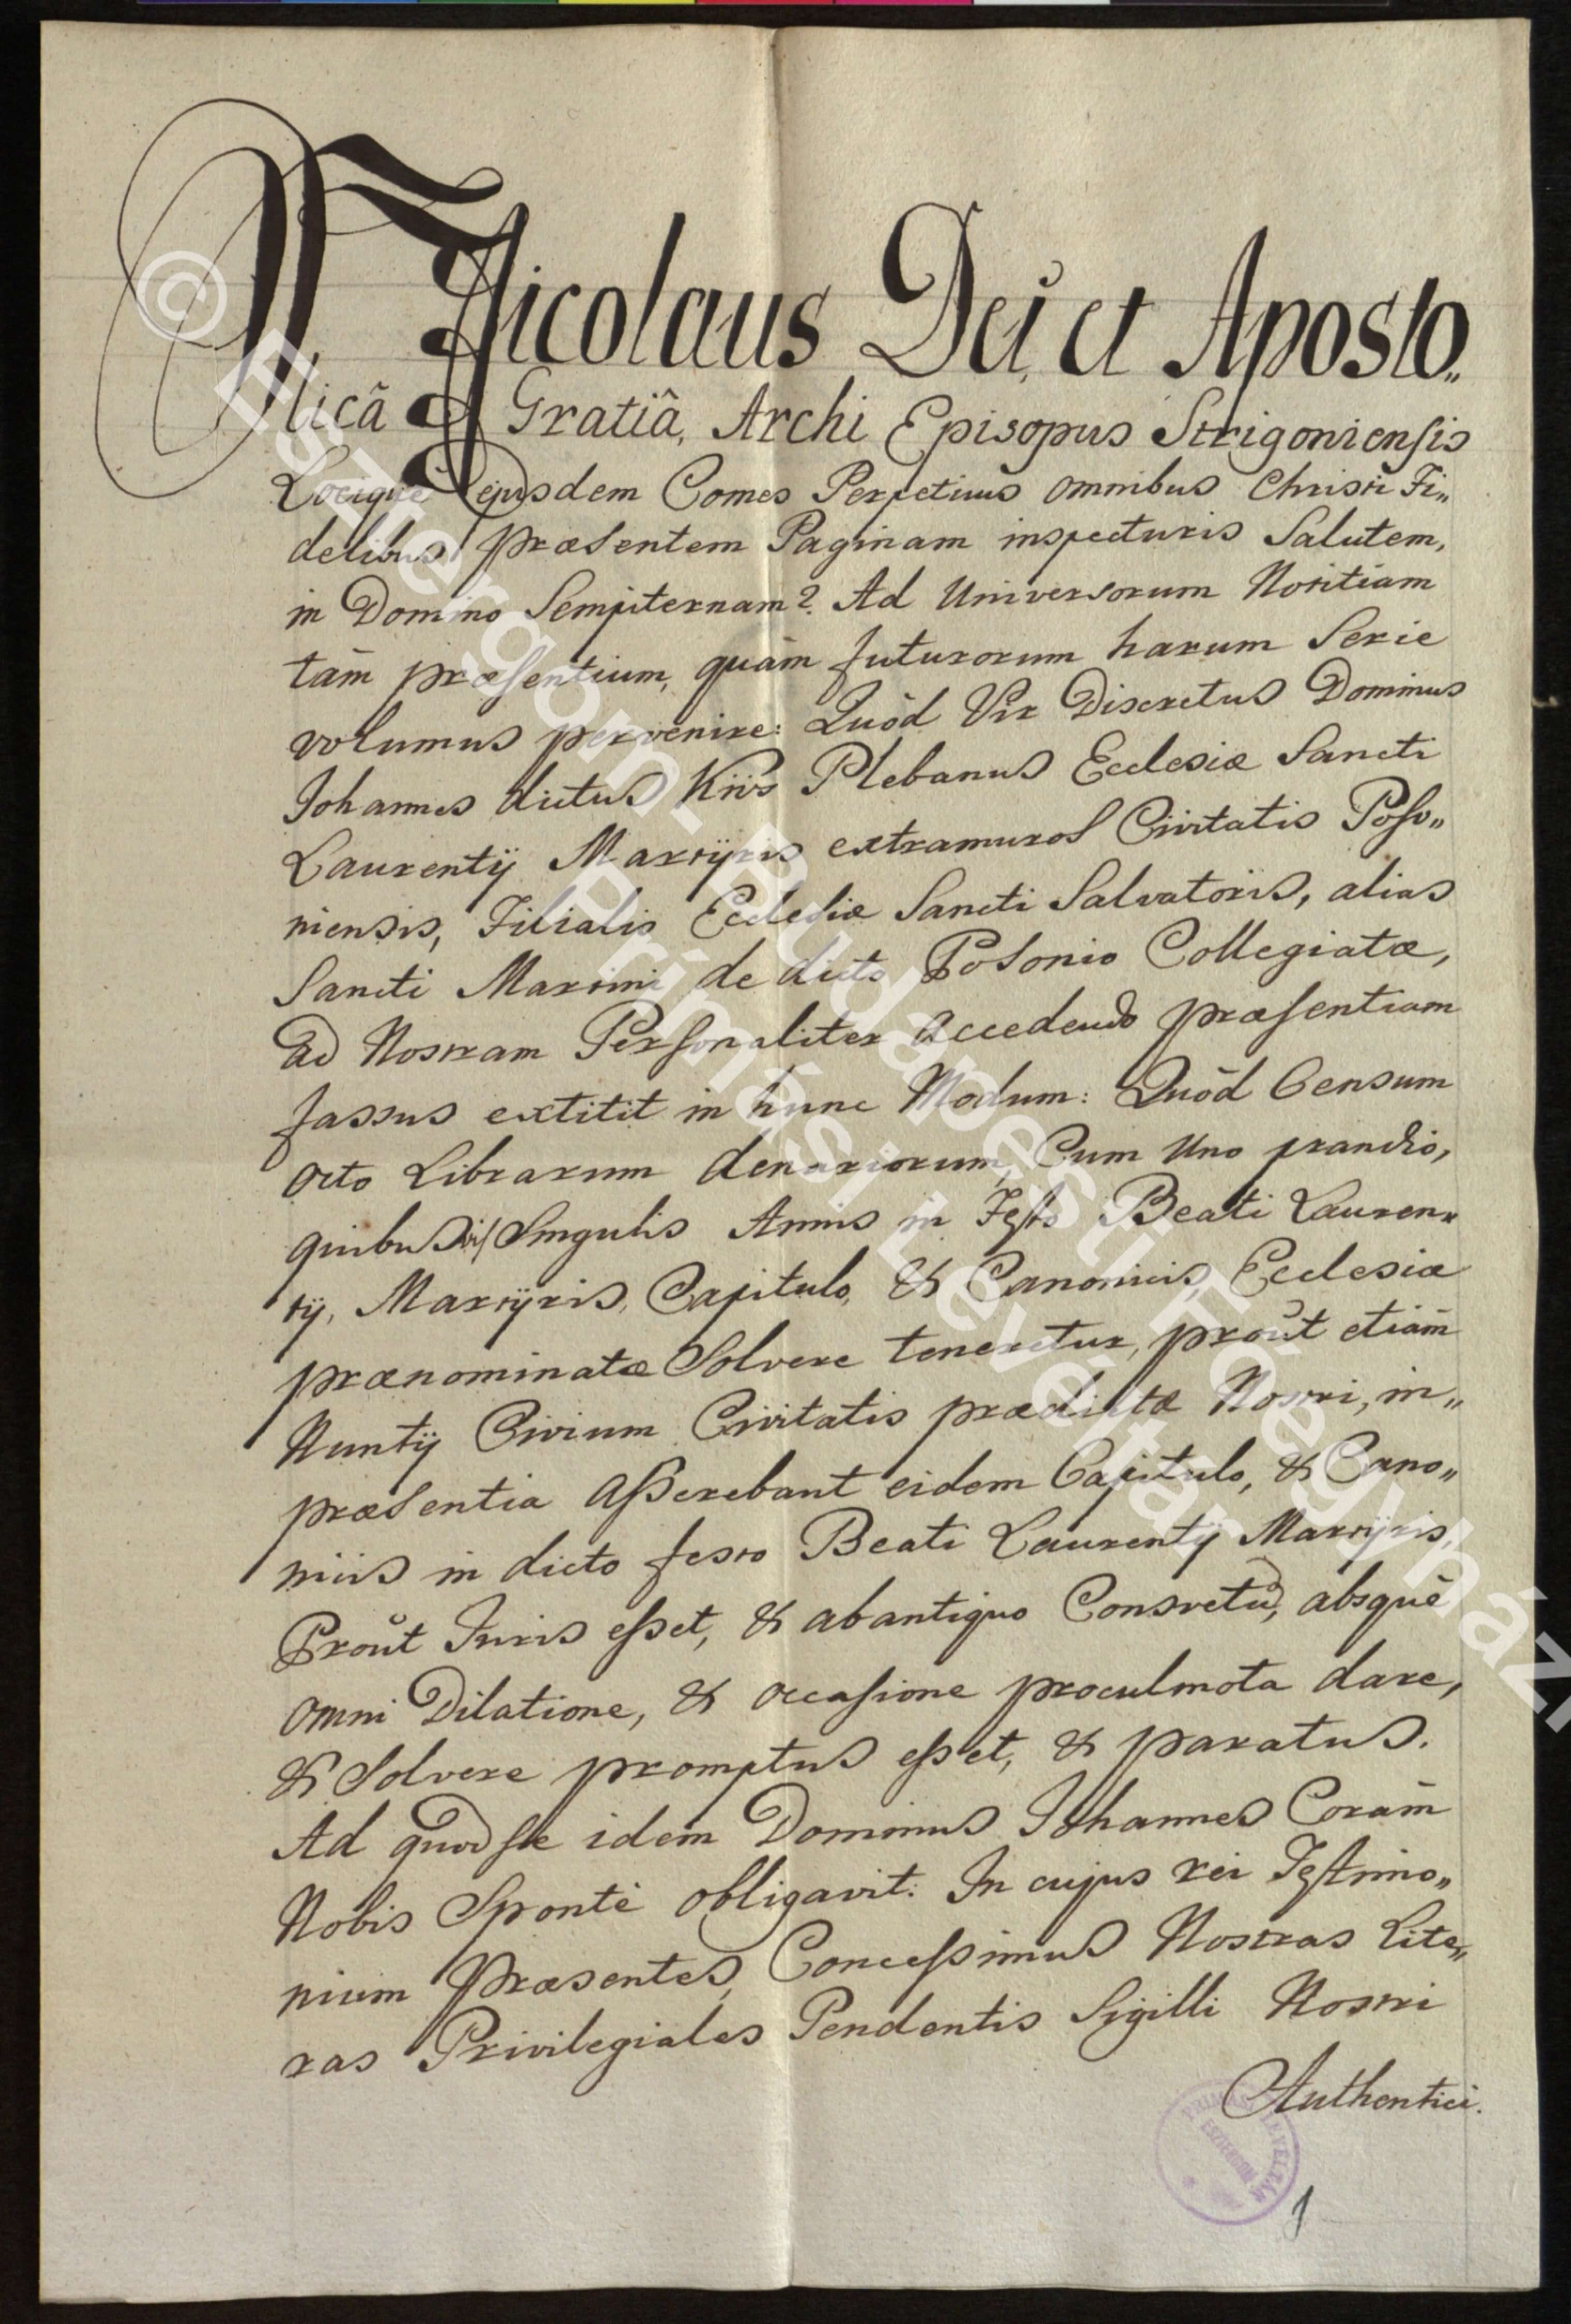 Nicolaus Dei, et Aposto„
licâ Gratiâ, Archi Episopus Strigoniensis
Locique ejusdem Comes Perpetuus omnibus Christi Fi„
delibus præsentem Paginam inspecturis Salutem,
in Domino Sempiternam?. Ad Universorum Notitiam
tàm præsentium, quàm futurorum harum Serie
volumus pervenire: Quòd Vir Discretus Dominus
Johannes dictus Kiis Plebanus Ecclesiæ Sancti
Laurentÿ Martÿris extramuros Civitatis Poso„
niensis, Filialis Ecclesiæ Sancti Salvatoris, alias
Sancti Martini de dicto Posonio Collegiatæ,
ad Nostram Personaliter accedendo præsentiam
fassus extitit in hunc Modum: Quòd Censum
octo Librarum denariorum, Cum Uno prandio,
quibus Singulis Annis in Festo Beati Lauren„
tÿ, Martÿris, Capitulo, & Canonicis, Ecclesiæ
prænominatæ Solvere teneretur, proùt etiàm
Nuntÿ Civium Civitatis prædictæ Nostri, in„
præsentia asserebant eidem Capitulo, & Cano„
niis in dicto festo Beati Laurentÿ Martÿris,
Proùt Juris esset, & abantiquo Consvetù, absquè
omni Dilatione, & occasione proculmota dare,
& Solvere promptus esset, & paratus.
Ad quod se idem Dominus Johannes Coràm
Nobis Spontè obligavit: In cujus rei Testimo„
nium Præsentes, Concessimus Nostras Lite„
ras Privilegiales Pendentis Sigilli Nostri
Authentici.
1
© Esztergom-Budapesti Főegyházi
Prímási Levéltár